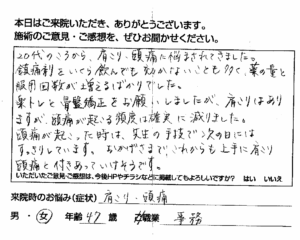 本日はご来院いただき、ありがとうございます。
施術のご意見・ご感想を、ぜひお聞かせください。
20代のころから、肩こり、頭痛に悩まされてきました。
鎮痛剤をいくら飲んでも効かないことも多く、薬の量と
服用回数が増えるばかりでした。
楽トレと骨盤矯正をお願いしましたが、肩こりはあり
ますが、頭痛が起こる頻度は確実に減りました。
頭痛が起こった時は、先生の手技で次の日には
すっきりしています。おかげさまで、これからも上手に肩こり
頭痛と付きあっていけそうです。
いただいたご意見・ご感想は、今後HPやチラシなどに掲載してもよろしいですか? はい いいえ
来院時のお悩み(症状) 肩こり・頭痛
男・女 年齢 47 歳 ご職業 事務